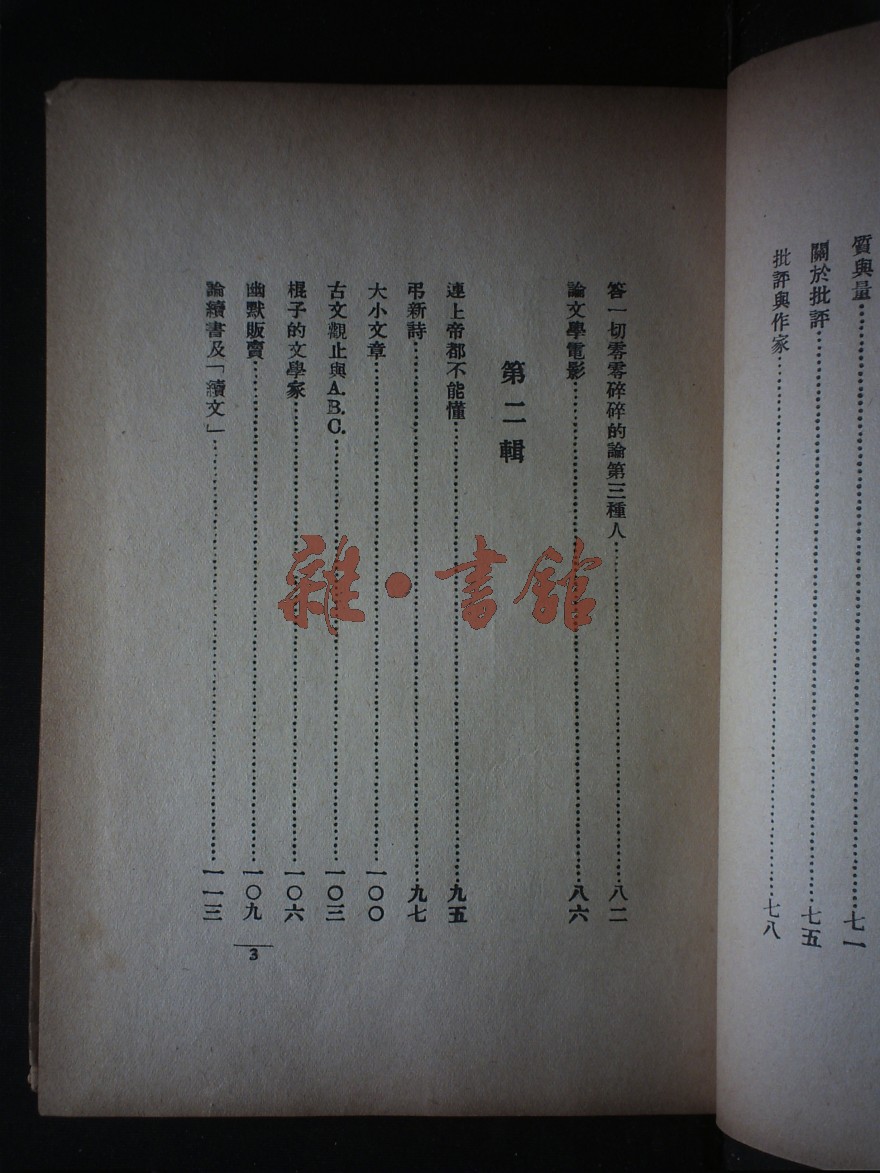 質與量……七一
關於批評……七五
批評與作家……七八
答一切零零碎碎的論第三種人……八二
論文學電影……八六
第二輯
連上帝都不能懂……九五
弔新詩……九七
大小文章……一〇〇
古文觀止與A.B.C.……一〇三
棍子的文學家……一〇六
幽默販賣……一〇九
論續書及「續文」……一一三
3
雜·書館